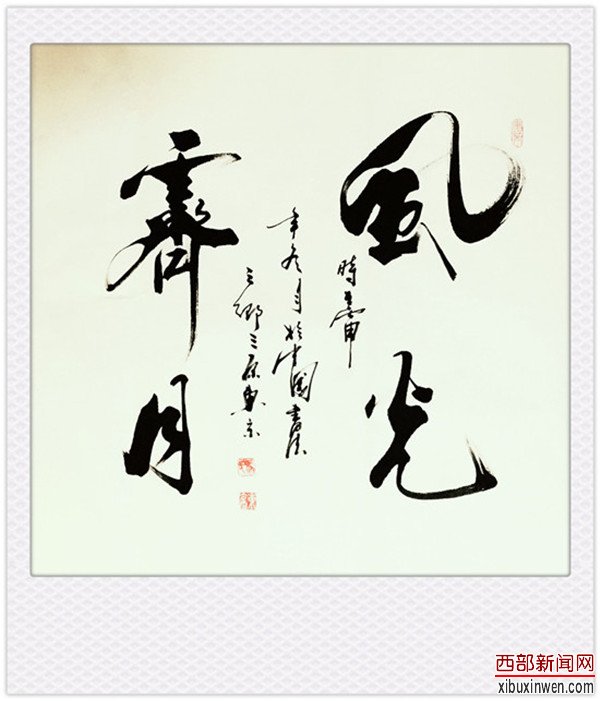 風光
霽月
時
年冬月於中國書法
之鄉三原
西部新闻网
xibuxinwen.com